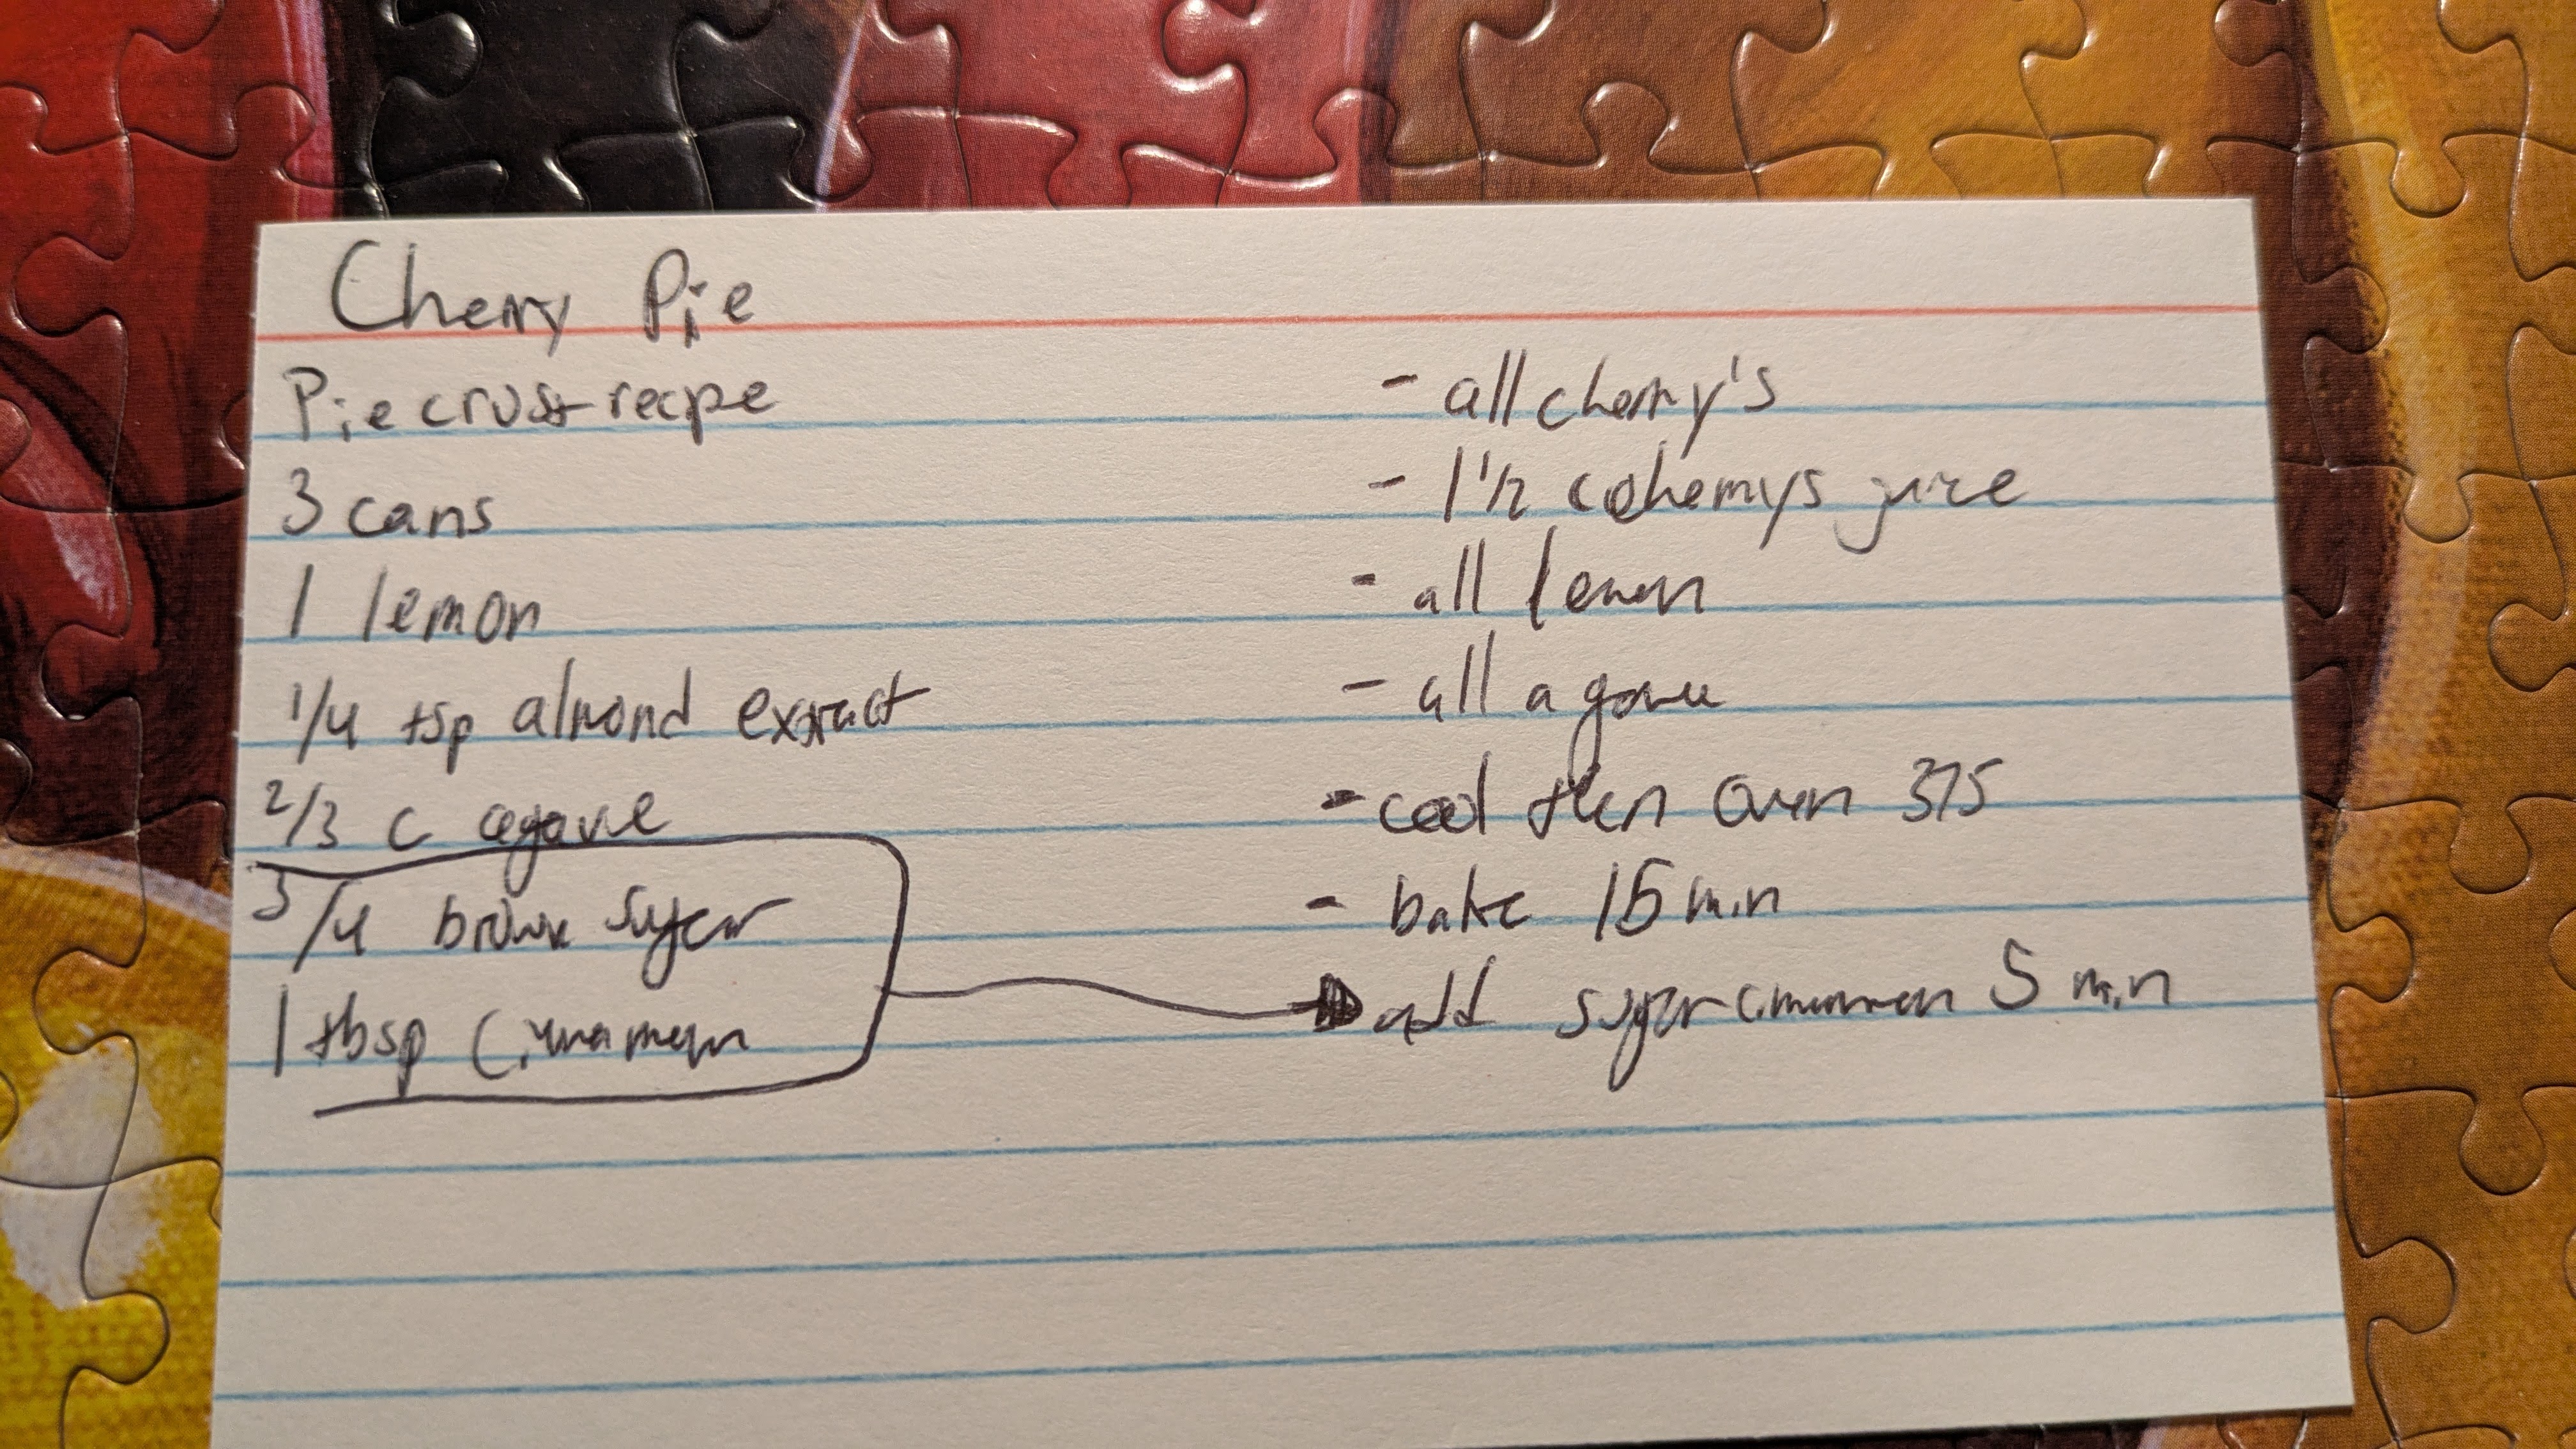 Cherry Pie
Pie crust recipe
3 cans
1 lemon
1/4 tsp almond extract
2/3 c agave
3/4 brown sugar
1 tbsp Cinnamon
- all cherry's
- 1 1/2 c cherrys juice
- all lemon
- all agave
- cool then oven 375
- bake 15 min
add sugar cinnamon 5 min